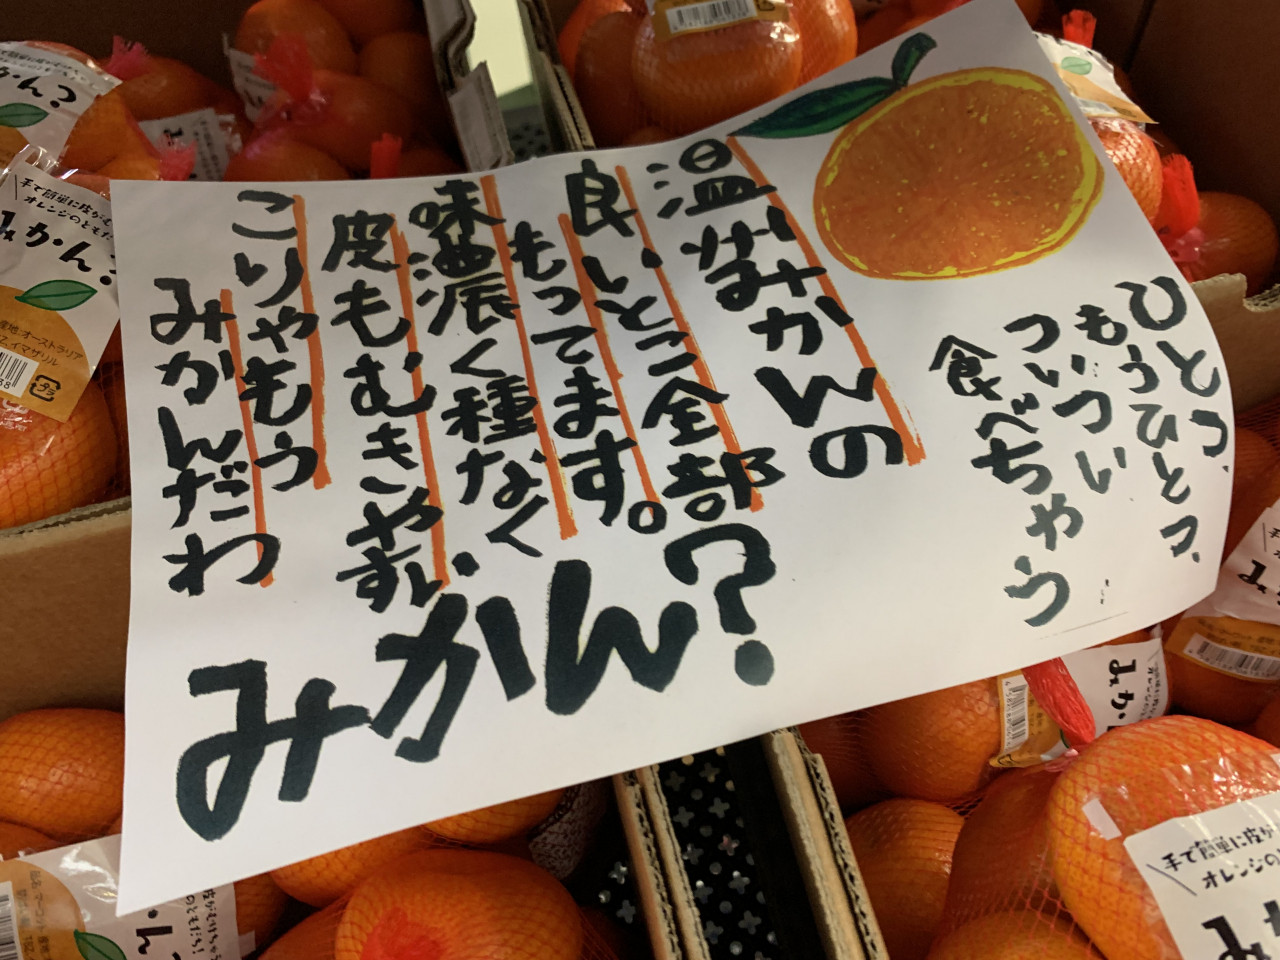 ひとつ、
もうひとつ、
もいつい
ついつい
食べちゃう
温州みかんの
良いとこ全部
もってます。
味濃く種なく
皮もむきやすい
こりゃもう
みかんだわ
みかん?
かん?
手で簡単に皮がむ
オレンジのともだ
みかん?
産地:オーストラリア
イマザリル
プラ
手で簡単に皮が
オレンジの